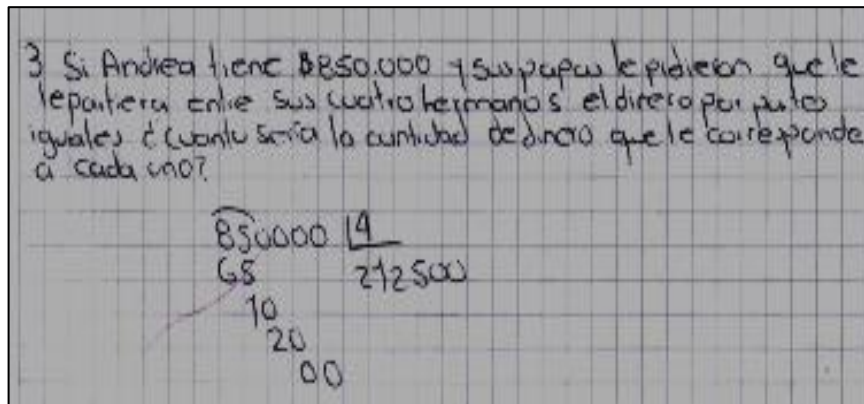 3 Si Andrea tiene $850.000 y sus papas le pidieron que le
repartiera entre sus cuatro hermanos el dinero por partes
iguales ¿cuanto sería la cantidad de dinero que le corresponde
a cada uno?
850000 4
05 212500
10
20
00